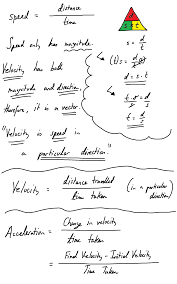 speed = distance / time
d
s t
Speed only has magnitude.
Velocity has both
magnitude and direction,
therefore, it is a vector.
"Velocity is speed in
a particular direction."
s = d/t
(t)s = d/t (t)
d = s · t
t · s = d
s s
t = d/s
Velocity = distance traveled / time taken (in a particular direction)
Acceleration = Change in velocity / time taken
= Final Velocity - Initial Velocity / Time Taken